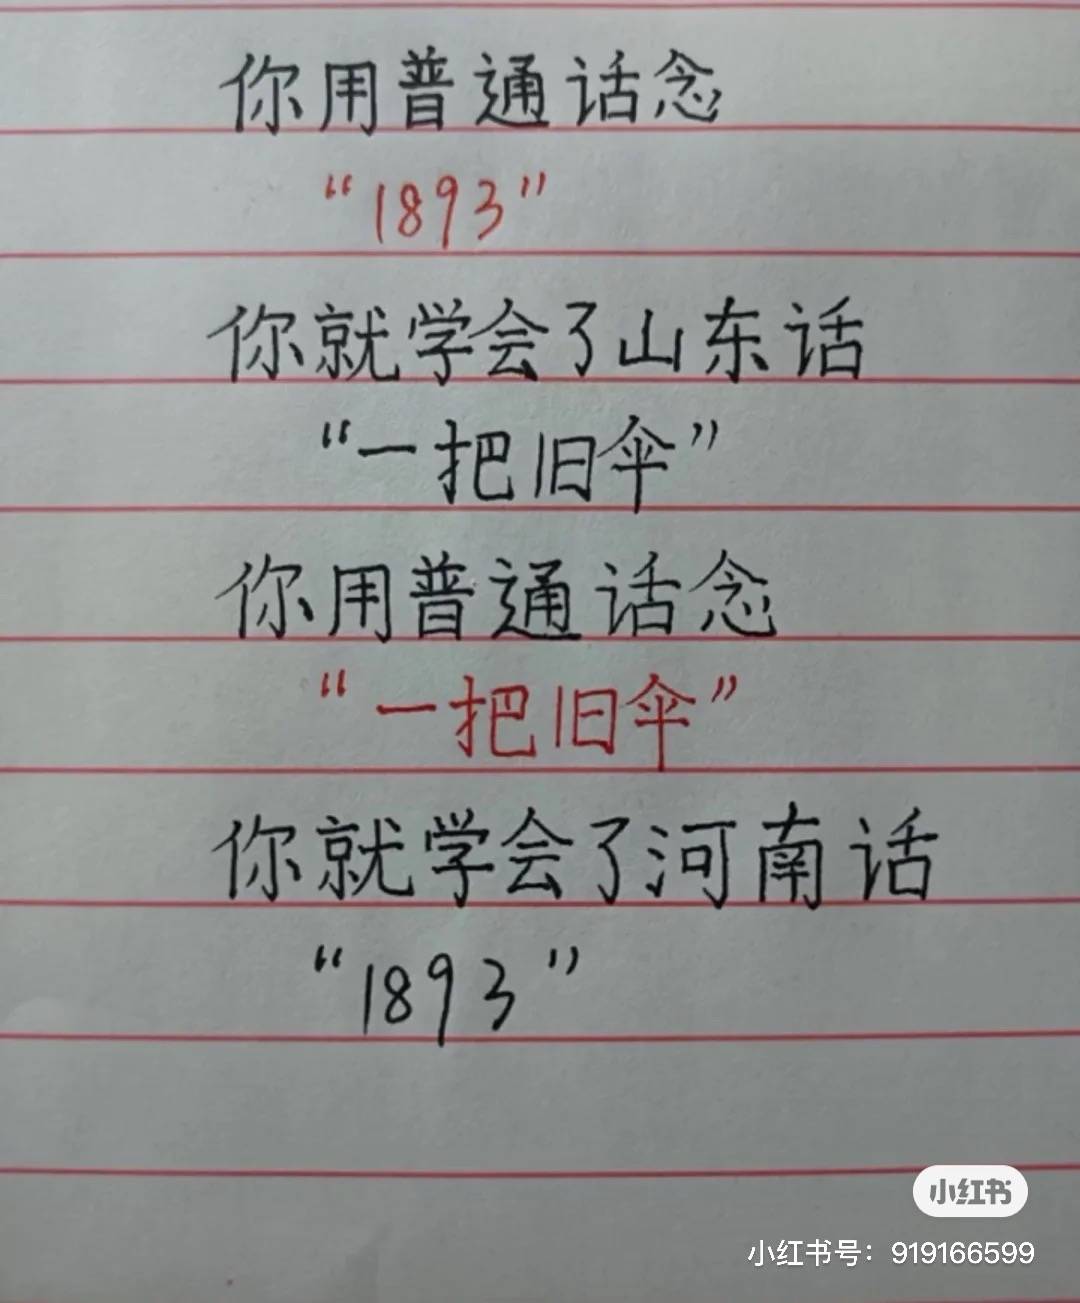 你用普通话念
“1893”
你就学会了山东话
“一把旧伞”
你用普通话念
“一把旧伞”
你就学会了河南话
“1893”
小红书
小红书号：919166599